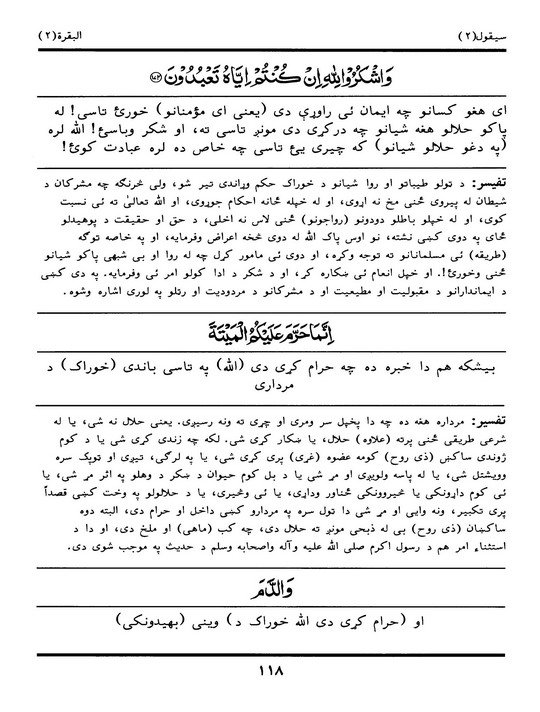 سیقول(۲) البقرة(۲)
وَاشْكُرُوْا لِلّٰهِ اِنْ كُنْتُمْ اِيَّاهُ تَعْبُدُوْنَ ﴿۱۷۲﴾
ای هغو کسانو چه ایمان ئی راوړی دی (یعنی ای مؤمنانو) خورئ تاسی! له
پاکو حلالو هغه شیانو چه درکړی دی مونږ تاسی ته، او شکر وباسئ! الله لره
(په دغو حلالو شیانو) که چیری یئ تاسی چه خاص ده لره عبادت کوئ!
تفیسر: د ټولو طیباتو او روا شیانو د خوراک حکم وړاندی تیر شو، ولی څرنګه چه مشرکان د
شیطان له پیروی ځنی مخ نه اړوی، او له خپله ځانه احکام جوړوی، او الله تعالیٰ ته ئی نسبت
کوی، او له خپلو باطلو دودونو (رواجونو) ځنی لاس نه اخلی، د حق او حقیقت د پوهیدلو
ځای په دوی کښی نشته، نو اوس پاک الله له دوی څخه اعراض وفرمایه، او په خاصه توګه
(طریقه) ئی مسلمانانو ته توجه وکړه، او دوی ئی مامور کړل چه له روا او بی شبهی پاکو شیانو
ځنی وخورئ!. او خپل انعام ئی ښکاره کړ، او د شکر د ادا کولو امر ئی وفرمایه. په دی کښی
د ایماندارانو د مقبولیت او مطیعیت او د مشرکانو د مردودیت او رټلو په لوری اشاره وشوه.
اِنَّمَا حَرَّمَ عَلَيْكُمُ الْمَيْتَةَ
بیشکه هم دا خبره ده چه حرام کړی دی (الله) په تاسی باندی (خوراک) د
مرداری
تفسیر: مرداره هغه ده چه دا پخپل سر ومری او چړی ته ونه رسیږی. یعنی حلال نه شی، یا له
شرعی طریقی ځنی پرته (علاوه) حلال، یا ښکار کړی شی. لکه چه زندی کړی شی یا د کوم
ژوندی ساکښ (ذی روح) کومه عضوه (غړی) پری کړی شی، یا په لرګی، تیږی او ټوپک سره
وویشتل شی، یا له پاسه ولویږی او مړ شی یا د بل کوم حیوان د ښکر د وهلو په اثر مړ شی، یا
ئی کوم داړونکی یا څیروونکی ځناور وداړی، یا ئی وڅیری، یا د حلالولو په وخت کښی قصداً
پری تکبیر، ونه وایی او مړ شی دا ټول سره په مردارو کښی داخل او حرام دی، البته دوه
ساکښان (ذی روح) بی له ذبحی مونږ ته حلال دی، چه کب (ماهی) او ملخ دی، او دا د
استثناء امر هم د رسول اکرم صلی الله علیه وآله واصحابه وسلم د حدیث په موجب شوی دی.
وَالدَّمَ
او (حرام کړی دی الله خوراک د) وینی (بهیدونکی)
۱۱۸